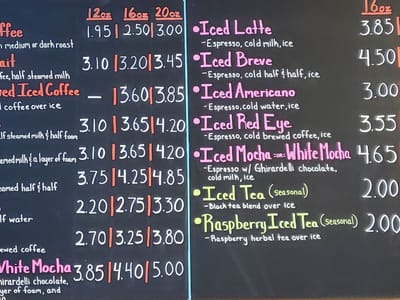 12oz 16oz 20oz
ffee 1.95 | 2.50 | 3.00
medium or dark roast
ait 3.10 | 3.20 | 3.45
ffee, half steamed milk
ed Iced Coffee — | 3.60 | 3.85
coffee over ice
3.10 | 3.65 | 4.20
half steamed milk & half foam
3.10 | 3.65 | 4.20
steamed milk & a layer of foam
3.75 | 4.25 | 4.85
eamed half & half
2.20 | 2.75 | 3.30
lf water
2.70 | 3.25 | 3.80
ewed coffee
White Mocha 3.85 | 4.40 | 5.00
hirardelli chocolate,
yer of foam, and
16oz
•Iced Latte 3.85
-Espresso, cold milk, ice
•Iced Breve 4.50
-Espresso, cold half & half, ice
•Iced Americano 3.00
-Espresso, cold water, ice
•Iced Red Eye 3.55
-Espresso, cold brewed coffee, ice
•Iced Mocha or White Mocha 4.65
-Espresso w/ Ghirardelli chocolate,
cold milk, ice
•Iced Tea (seasonal) 2.00
-Black tea blend over ice
•Raspberry Iced Tea (seasonal) 2.00
-Raspberry herbal tea over ice